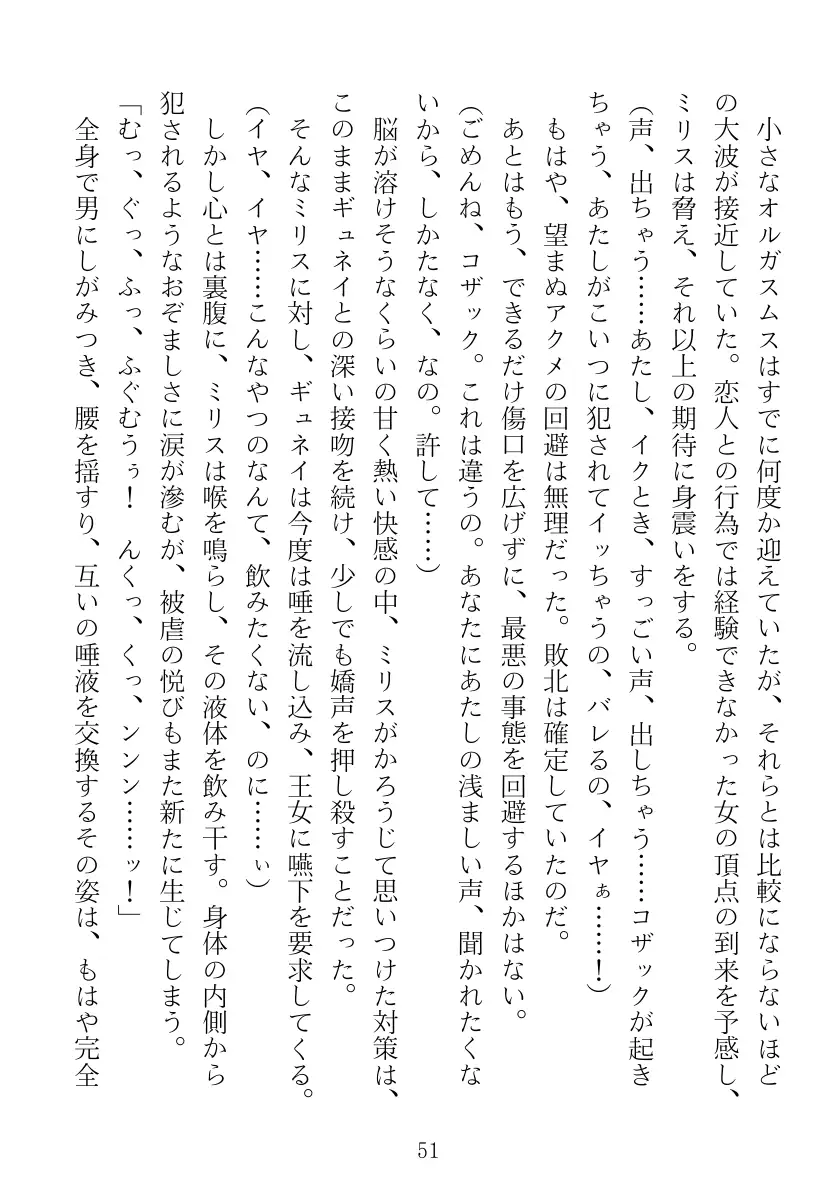 小さなオルガスムスはすでに何度か迎えていたが、それらとは比較にならないほど
の大波が接近していた。恋人との行為では経験できなかった女の頂点の到来を予感し、
ミリスは脅え、それ以上の期待に身震いをする。
（声、出ちゃう……あたし、イクとき、すっごい声、出しちゃう……コザックが起き
ちゃう、あたしがこいつに犯されてイッちゃうの、バレるの、イヤぁ……！）
もはや、望まぬアクメの回避は無理だった。敗北は確定していたのだ。
あとはもう、できるだけ傷口を広げずに、最悪の事態を回避するほかはない。
（ごめんね、コザック。これは違うの。あなたにあたしの浅ましい声、聞かれたくな
いから、しかたなく、なの。許して……）
脳が溶けそうなくらいの甘く熱い快感の中、ミリスがかろうじて思いつけた対策は、
このままギュネイとの深い接吻を続け、少しでも嬌声を押し殺すことだった。
そんなミリスに対し、ギュネイは今度は唾を流し込み、王女に嚥下を要求してくる。
（イヤ、イヤ……こんなやつのなんて、飲みたくない、のに……ぃ）
しかし心とは裏腹に、ミリスは喉を鳴らし、その液体を飲み干す。身体の内側から
犯されるようなおぞましさに涙が滲むが、被虐の悦びもまた新たに生じてしまう。
「むっ、ぐっ、ふっ、ふぐむうぅ！　んくっ、くっ、ンンン……ッ！」
全身で男にしがみつき、腰を揺すり、互いの唾液を交換するその姿は、もはや完全
51